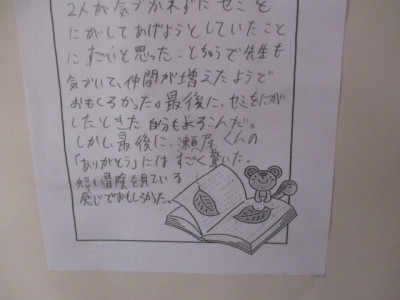 2人が気づかれずにセミを
にがしてあげようとしていたこと
にすごいと思った。とちゅうで先生も
気づいて、仲間が増えたようで
おもしろかった。最後に、セミをにがし
したときた 自分もよろこんだ。
しかし、最後に、瀬尾くんの
「ありがとう」にはすごく驚いた。
短い冒険を見ている
感じでおもしろかった。